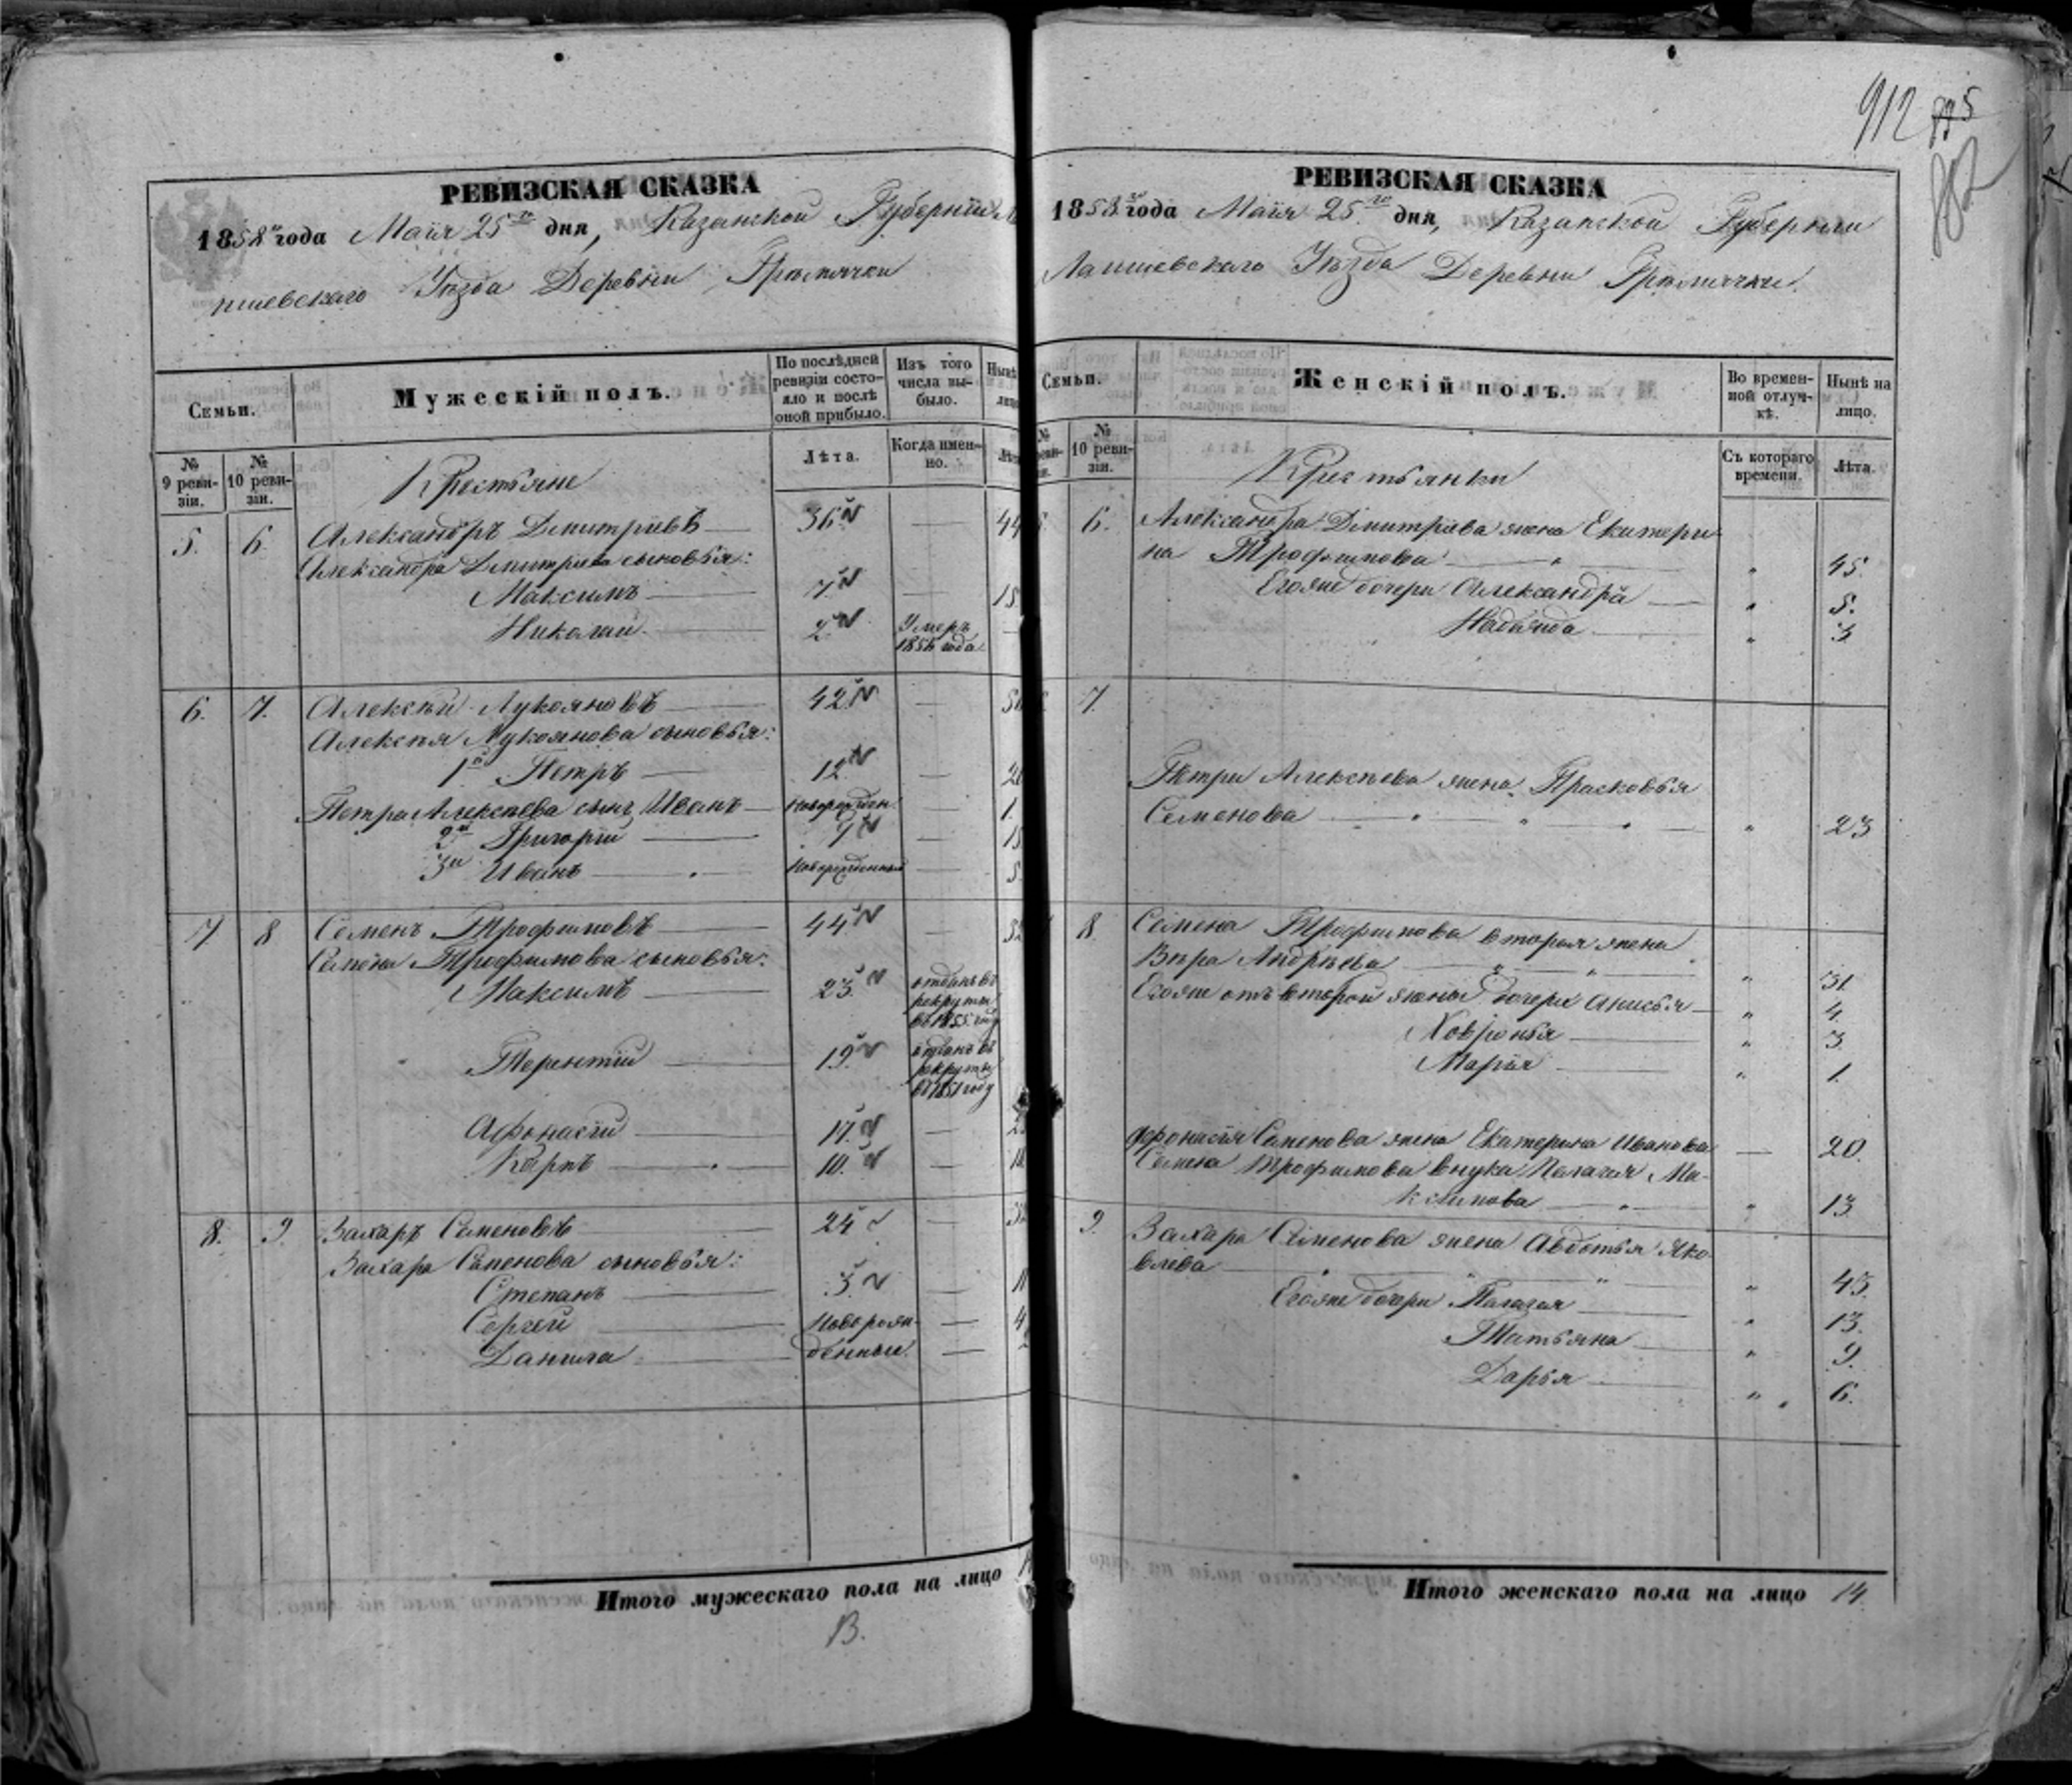 912
РЕВИЗСКАЯ СКАЗКА
1858 го года Маія 25 го дня, Казанской Губерніи
пшевскаго Уѣзда Деревни Грѣмячки
Семьи.
Мужескій полъ.
По послѣдней ревизіи состояло и послѣ оной прибыло.
Изъ того числа выбыло.
Нынѣ
лицо
№ 9 ревизіи.
№ 10 ревизіи.
Лѣта.
Когда именно.
Лѣта
Крестьяне
5. 6. Александръ Дмитріевъ 36. 44
Александра Дмитріева сыновья:
Максимъ 7. 15
Николай 2. Умеръ 1856 года
6. 7. Алексѣй Лукояновъ 42. 50
Алексѣя Лукоянова сыновья:
1й Петръ 12. 20
Петра Алексѣева сынъ Иванъ Новорожден 1.
2й Григорій 7
3й Иванъ Новорожденный 5
7 8 Семенъ Трофимовъ 44 52
Семена Трофимова сыновья:
Максимъ 23. отданъ въ рекруты въ 1855 году
Терентій 19. отданъ въ рекруты въ 1851 году
Афонасій 17.
Карпъ 10. 18
8. 9. Захаръ Семеновъ 24
Захара Семенова сыновья:
Степанъ 3. 11
Сергей Новорож- 4
Данила денные.
Итого мужескаго пола на лицо
В.
РЕВИЗСКАЯ СКАЗКА
1858 го года Маія 25 го дня, Казанской Губерніи
Лаишевскаго Уѣзда Деревни Грѣмячки.
Семьи.
Женскій полъ.
Во временной отлучкѣ.
Нынѣ на лицо.
№ 10 ревизіи.
Съ котораго времени.
Лѣта.
Крестьянки
6. Александра Дмитріева жена Екатери-
на Трофимова " 45.
Егоже дочери Александра " 5.
Надежда " 3
7.
Петра Алексѣева жена Прасковья
Семенова " 23
8. Семена Трофимова вторая жена
Вѣра Андрѣева " 31
Егоже отъ второй жены дочери Анисья " 4.
Ховронья " 3.
Марья " 1.
Афонасія Семенова жена Екатерина Иванова 20.
Семена Трофимова внука Палагея Ма-
ксимова " 13
9. Захара Семенова жена Авдотья Яко-
влева " 43.
Егоже дочери Палагея " 13.
Татьяна " 9.
Дарья " 6.
Итого женскаго пола на лицо 14